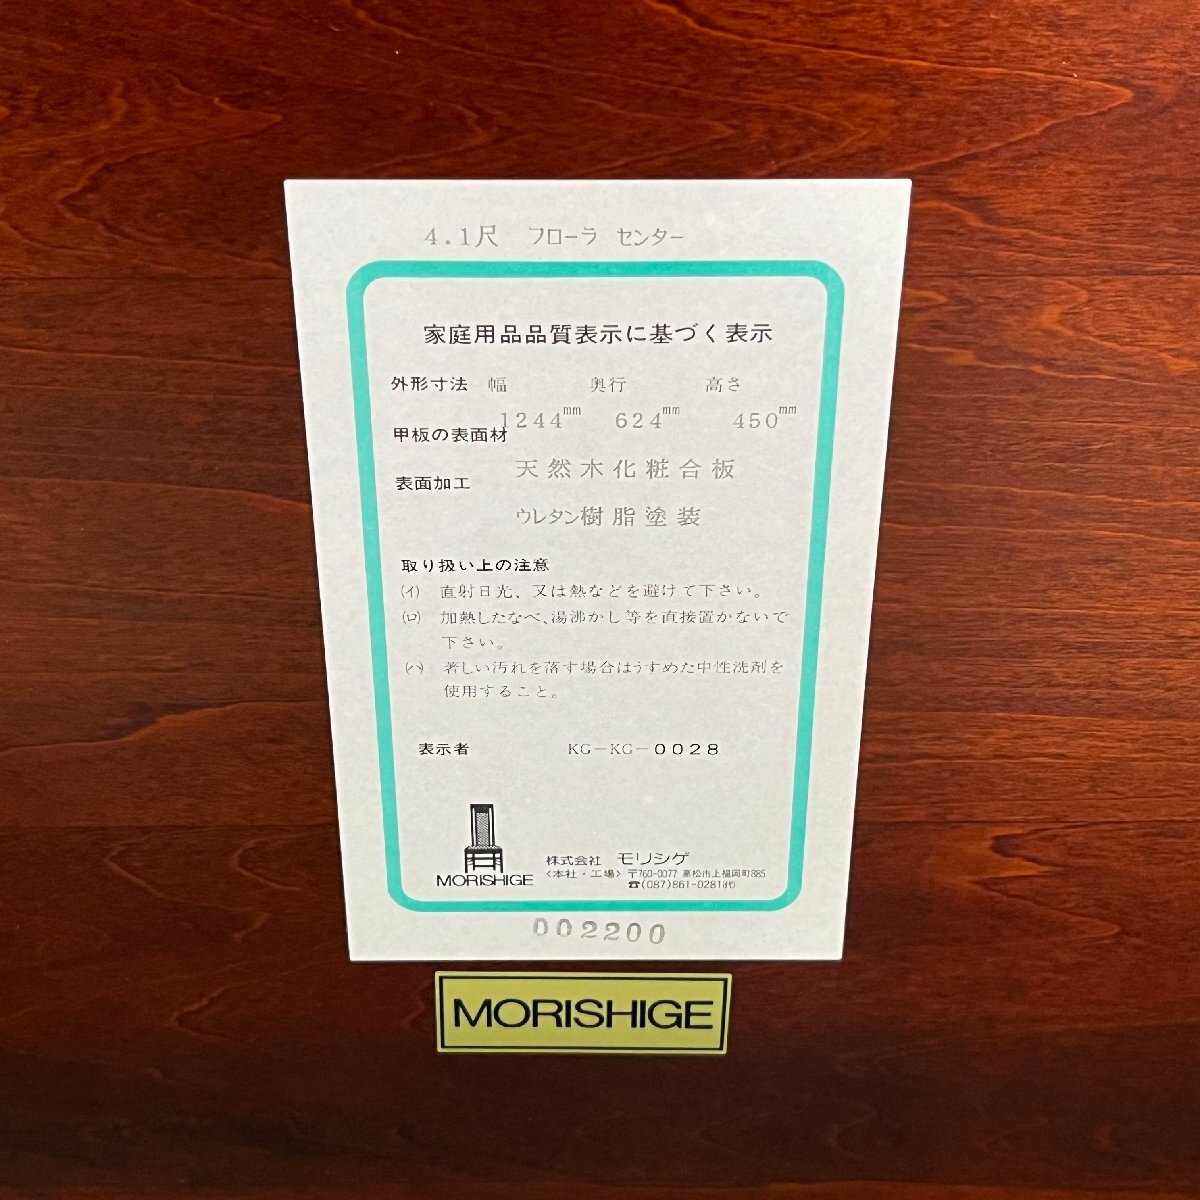 4.1尺 フローラ センター
家庭用品品質表示に基づく表示
外形寸法 幅 奥行 高さ
1244mm 624mm 450mm
甲板の表面材
天然木化粧合板
表面加工
ウレタン樹脂塗装
取り扱い上の注意
(イ) 直射日光、又は熱などを避けて下さい。
(ロ) 加熱したなべ、湯沸かし等を直接置かないで
下さい。
(ハ) 著しい汚れを落す場合はうすめた中性洗剤を
使用すること。
表示者 KG-KG-0028
株式会社 モリシゲ
<本社・工場> 〒760-0077 高松市上福岡町885
☎(087)861-0281㈹
MORISHIGE
002200
MORISHIGE